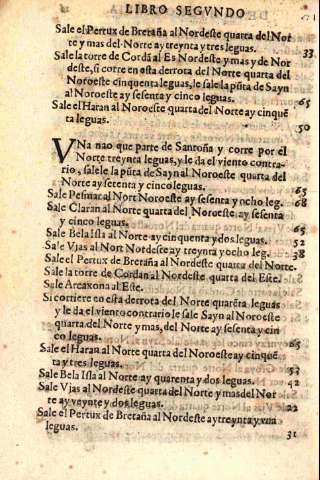 LIBRO SEGVNDO
Sale el Pertux de Bretaña al Nordeste quarta del Nor
te y mas del Norte ay treynta y tres leguas.
33
Sale la torre de Cordã al Es Nordeste y mas y de Nor
deste, si corre en esta derrota del Norte quarta del
Noroeste cinquenta leguas, le sale la pũta de Sayn
al Noroeste ay sesenta y cinco leguas.
65
Sale el Haran al Noroeste quarta del Norte ay cinquẽ
ta leguas.
50
VNa nao que parte de Santoña y corre por el
Norte treynta leguas, y le da el viento contra-
rio, salele la pũta de Sayn al Noroeste quarta del
Norte ay sesenta y cinco leguas.
65
Sale Pesmar al Nort Noroeste ay sesenta y ocho leg.
68
Sale Claran al Norte quarta del Noroeste ay sesenta
y cinco leguas.
65
Sale Bela Isla al Norte ay cinquenta y dos leguas.
52
Sale Vjas al Nort Nordeste ay treynta y ocho leg.
38
Sale el Pertux de Bretaña al Nordeste quarta del Norte.
Sale la torre de Cordan al Nordeste quarta del Este.
Sale Arcaxona al Este.
Si corriere en esta derrota del Norte quarẽta leguas
y le da el viento contrario le sale Sayn al Noroeste
quarta del Norte y mas, del Norte ay sesenta y cin
co leguas.
65
Sale el Haran al Norte quarta del Noroeste ay cinquẽ
ta y tres leguas.
53
Sale Bela Isla al Norte ay quarenta y dos leguas.
42
Sale Vjas al Nordeste quarta del Norte y mas del Nor
te ay veynte y dos leguas.
22
Sale el Pertux de Bretaña al Nordeste ay treynta y vna
leguas.
31